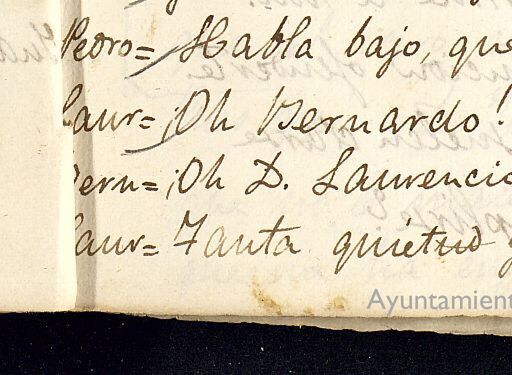 Pedro= Habla bajo, que
Laur= ¡Oh Bernardo!
Bern= ¡Oh D. Laurencio
Laur= Tanta quietud y
Ayuntamient